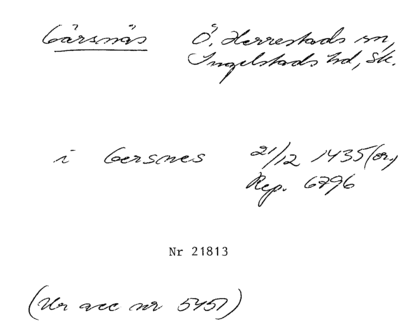 Gärsnäs Ö. Herrestads sn,
Ingelstads hd, Sk.
i Gersnes 21/12 1435 (or.)
Rep. 6796
Nr 21813
(Ur acc nr 5451)